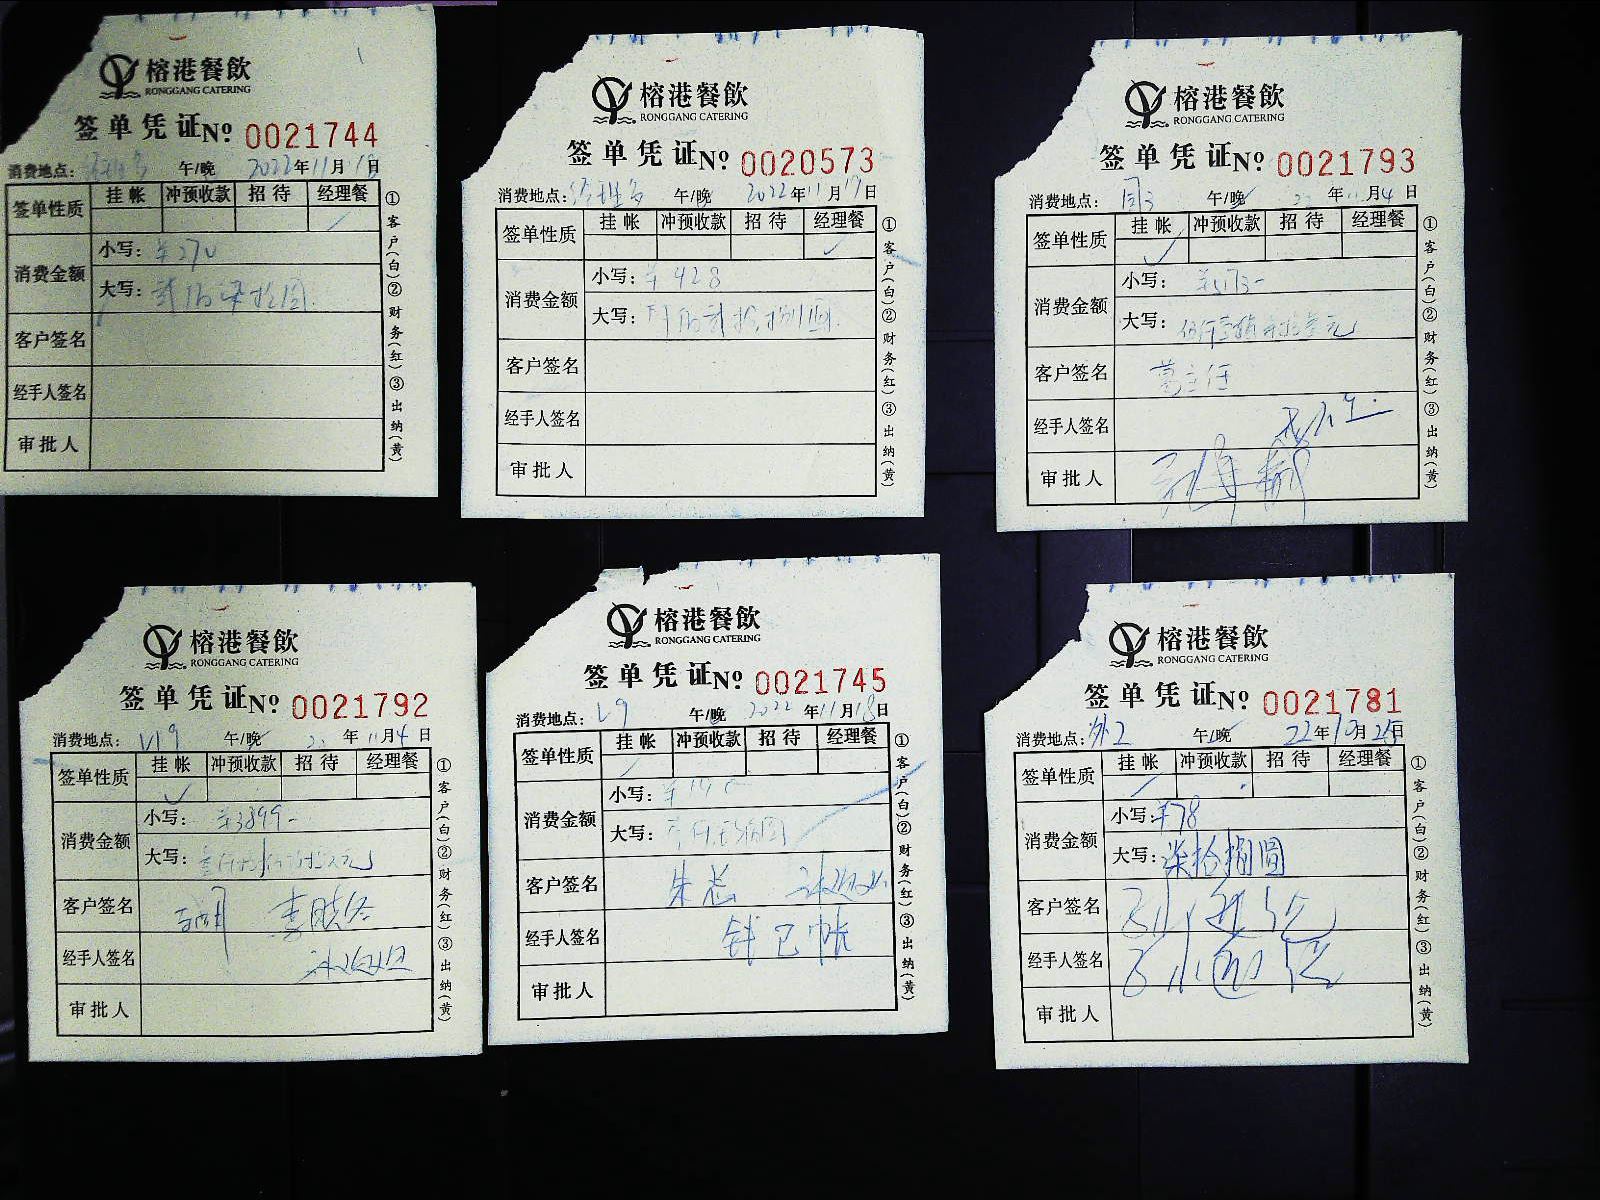 榕港餐飲
RONGGANG CATERING
签单凭证№ 0021744
消费地点： 午/晚 2022年11月18日
签单性质 挂帐 冲预收款 招待 经理餐
消费金额
小写：¥270
大写：贰佰柒拾圆
客户签名
经手人签名
审批人
①客户(白)②财务(红)③出纳(黄)
榕港餐飲
RONGGANG CATERING
签单凭证№ 0020573
消费地点： 午/晚 2022年11月17日
签单性质 挂帐 冲预收款 招待 经理餐
消费金额
小写：¥428
大写：肆佰贰拾捌圆
客户签名
经手人签名
审批人
①客户(白)②财务(红)③出纳(黄)
榕港餐飲
RONGGANG CATERING
签单凭证№ 0021793
消费地点： 午/晚 22年11月4日
签单性质 挂帐 冲预收款 招待 经理餐
消费金额
小写：¥5173-
大写：
客户签名 葛主任
经手人签名
审批人
①客户(白)②财务(红)③出纳(黄)
榕港餐飲
RONGGANG CATERING
签单凭证№ 0021792
消费地点：V19 午/晚 22年11月4日
签单性质 挂帐 冲预收款 招待 经理餐
消费金额
小写：¥3899-
大写：
客户签名
经手人签名
审批人
①客户(白)②财务(红)③出纳(黄)
榕港餐飲
RONGGANG CATERING
签单凭证№ 0021745
消费地点：V9 午/晚 2022年11月18日
签单性质 挂帐 冲预收款 招待 经理餐
消费金额
小写：
大写：
客户签名 朱总
经手人签名 钱已帐
审批人
①客户(白)②财务(红)③出纳(黄)
榕港餐飲
RONGGANG CATERING
签单凭证№ 0021781
消费地点：外2 午/晚 22年10月 日
签单性质 挂帐 冲预收款 招待 经理餐
消费金额
小写：¥78
大写：柒拾捌圆
客户签名
经手人签名
审批人
①客户(白)②财务(红)③出纳(黄)